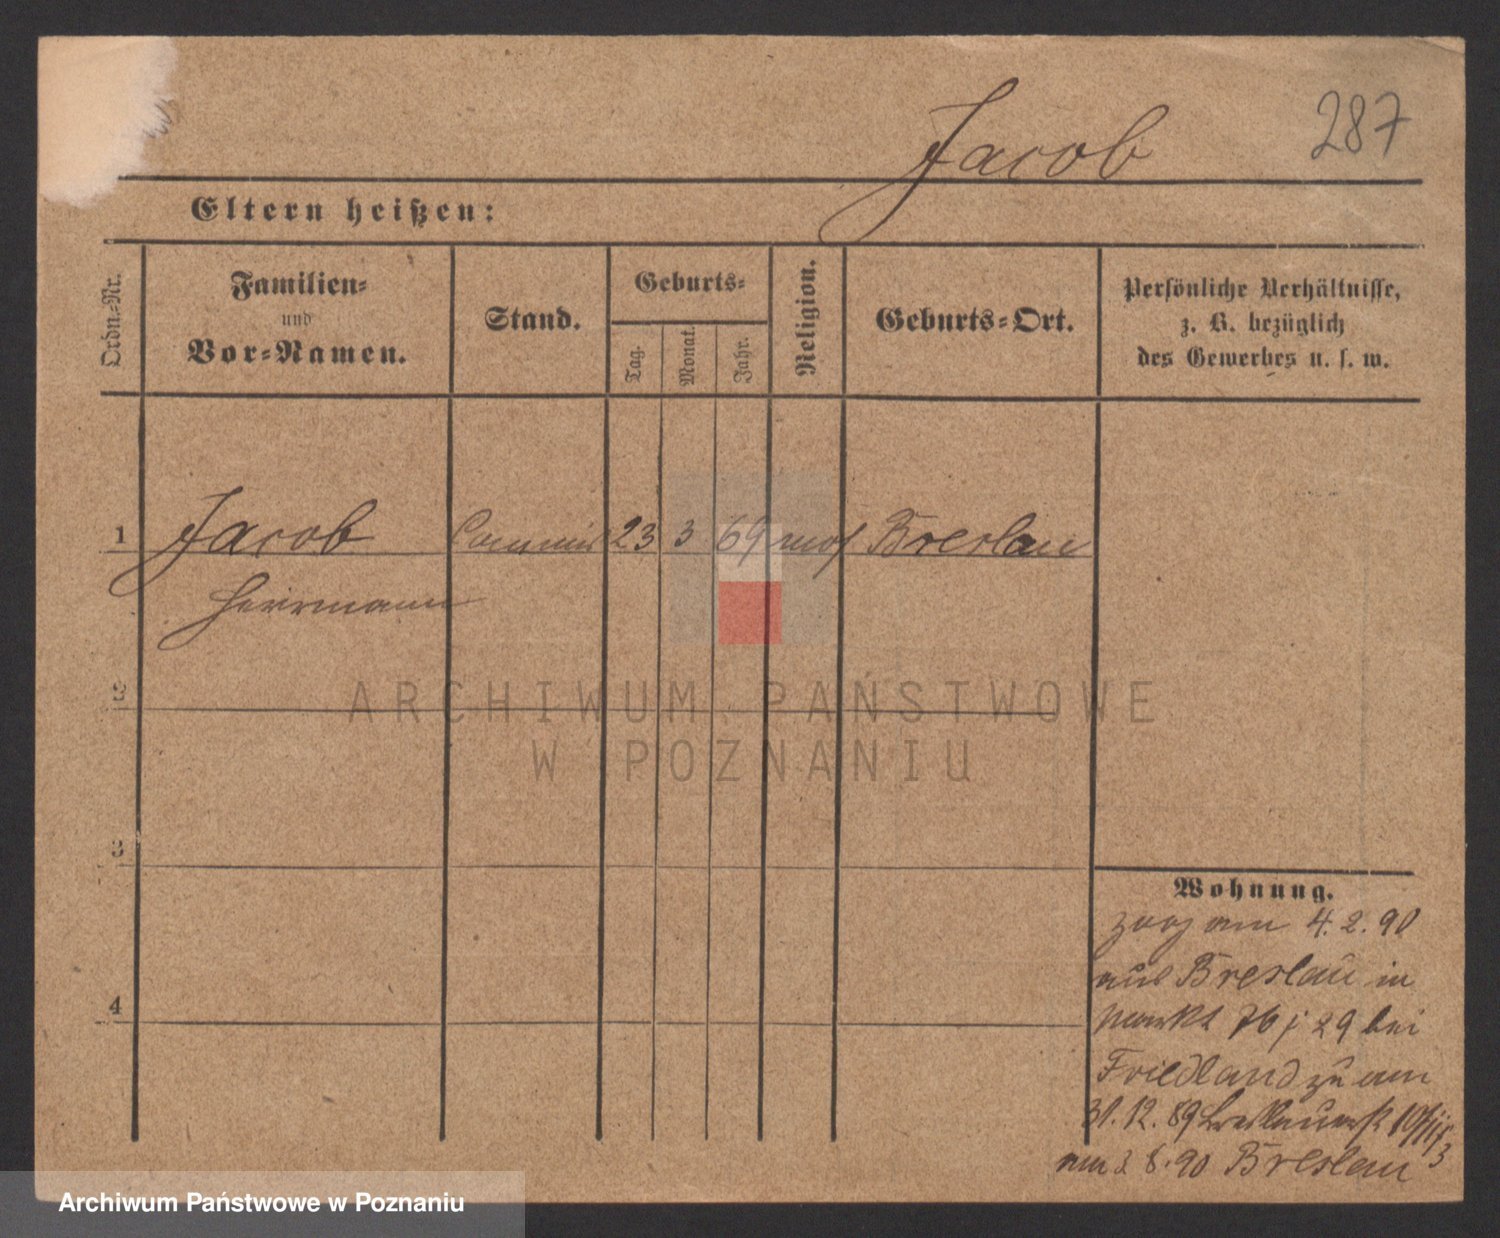 Jacob
287
Eltern heißen:
Ordn.-Nr.
Familien-
und
Vor-Namen.
Stand.
Geburts-
Tag.
Monat.
Jahr.
Religion.
Geburts-Ort.
Persönliche Verhältnisse,
z. B. bezüglich
des Gewerbes u. s. w.
1 Jacob Commis 23 3 69 mos Breslau
Herrmann
2
3
4
Wohnung.
zog am 4. 2. 90
aus Breslau in
Markt 76 j 29 bei
Friedland zu am
31. 12. 89 10
am 3. 6. 90 Breslau
ARCHIWUM PAŃSTWOWE
W POZNANIU
Archiwum Państwowe w Poznaniu